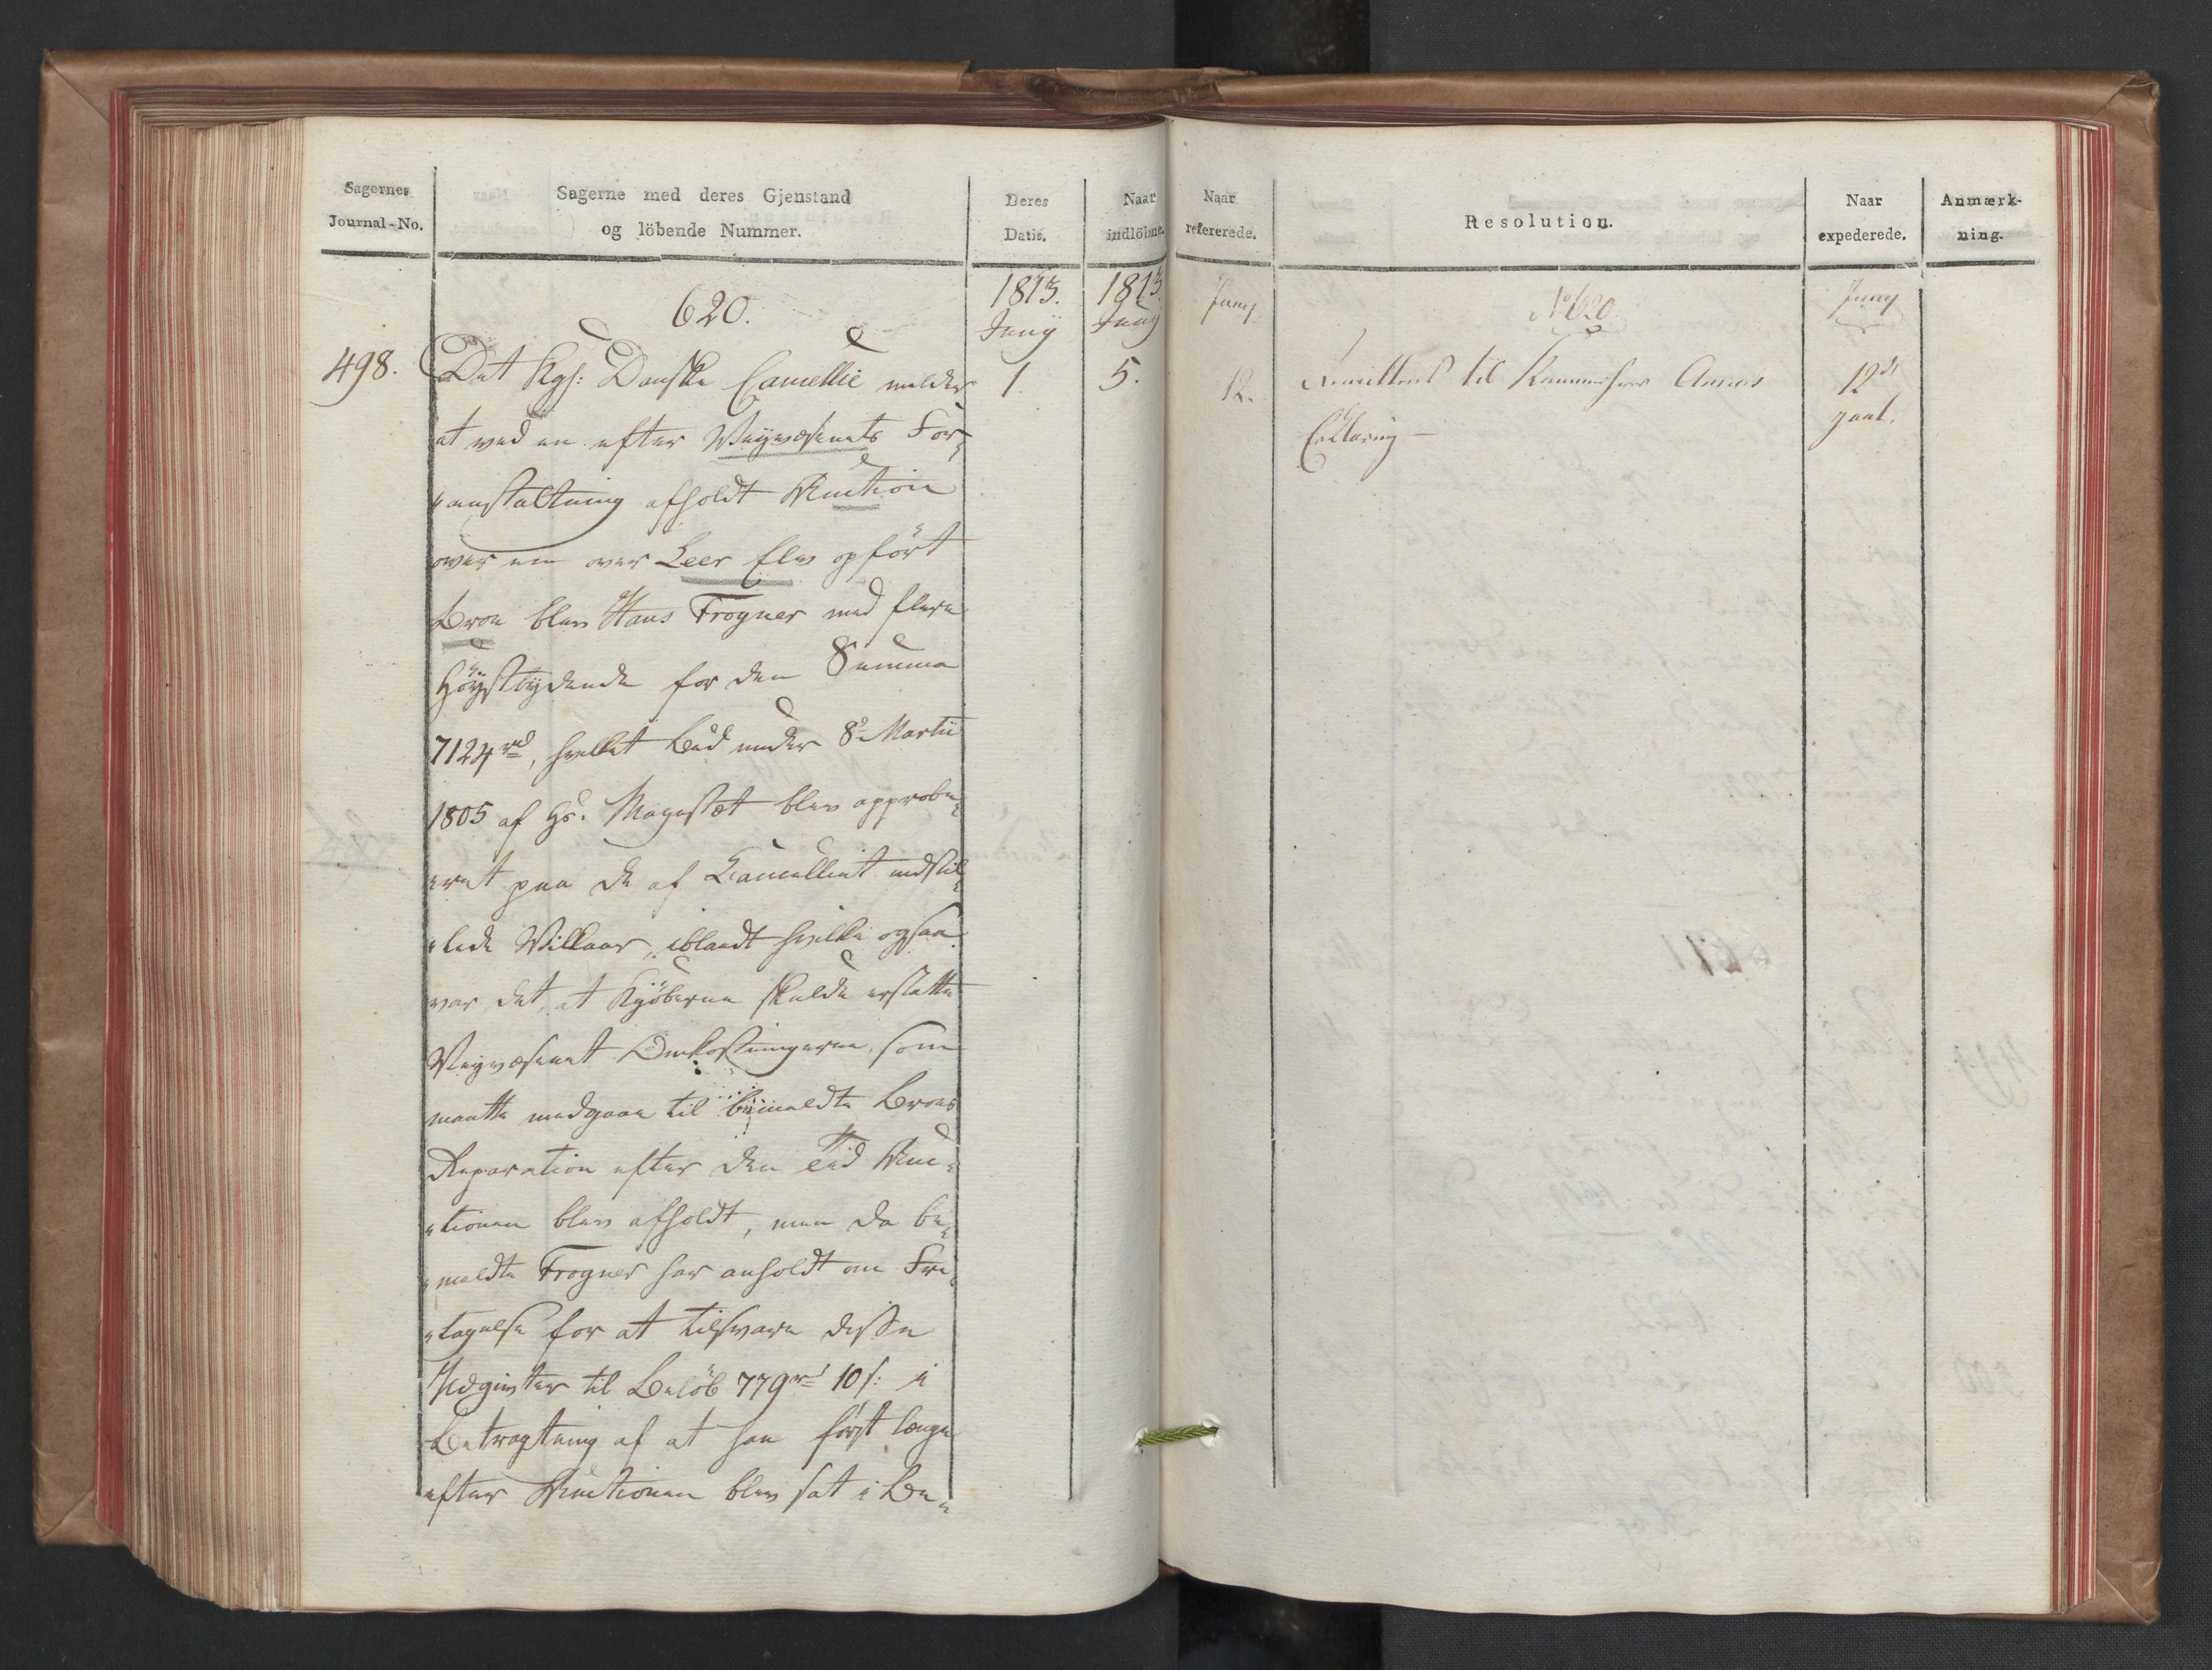 Sagernes
Journal-No.
Sagerne med deres Gjenstand
og löbende Nummer.
Deres
Datis.
Naar
indlöbne.
620.
1813.
Juny
1813.
Juny
498.
Det Kgl: Danske Cancellie melder
1.
5.
at ved en efter Veyvæsenets For¬
anstaltning afholdt Auction
over en over Leer Elv opfört
Broe blev Hans Frogner med flere
Höystbydende for den Summa
7124 rd, hvilket Bud under 8de Martii
1805 af Hs. Mayestæt blev approbe¬
eret paa de af Cancelliet indstil¬
lede Vilkaar, iblandt hvilke ogsaa
var det, at Kjöberne skulde erstatte
Veyvæsenet Omkostningerne, som
maatte medgaae til bemeldte Broes
Reparation efter den Tid Auc¬
tionen blev afholdt, men da be¬
meldte Frogner har anholdt om Fri¬
tagelse for at tilsvare disse
Udgivter til Belöb 779 rd 10 s: i
Betragtning af at han först længe
efter Auctionen blev sat i Be¬
Naar
refererede.
Resolution.
Naar
expederede.
Anmærk-
ning.
Juny
No 620.
Juny
12.
Remitteres til Kammerherre Ankers
12te
Erklæring —